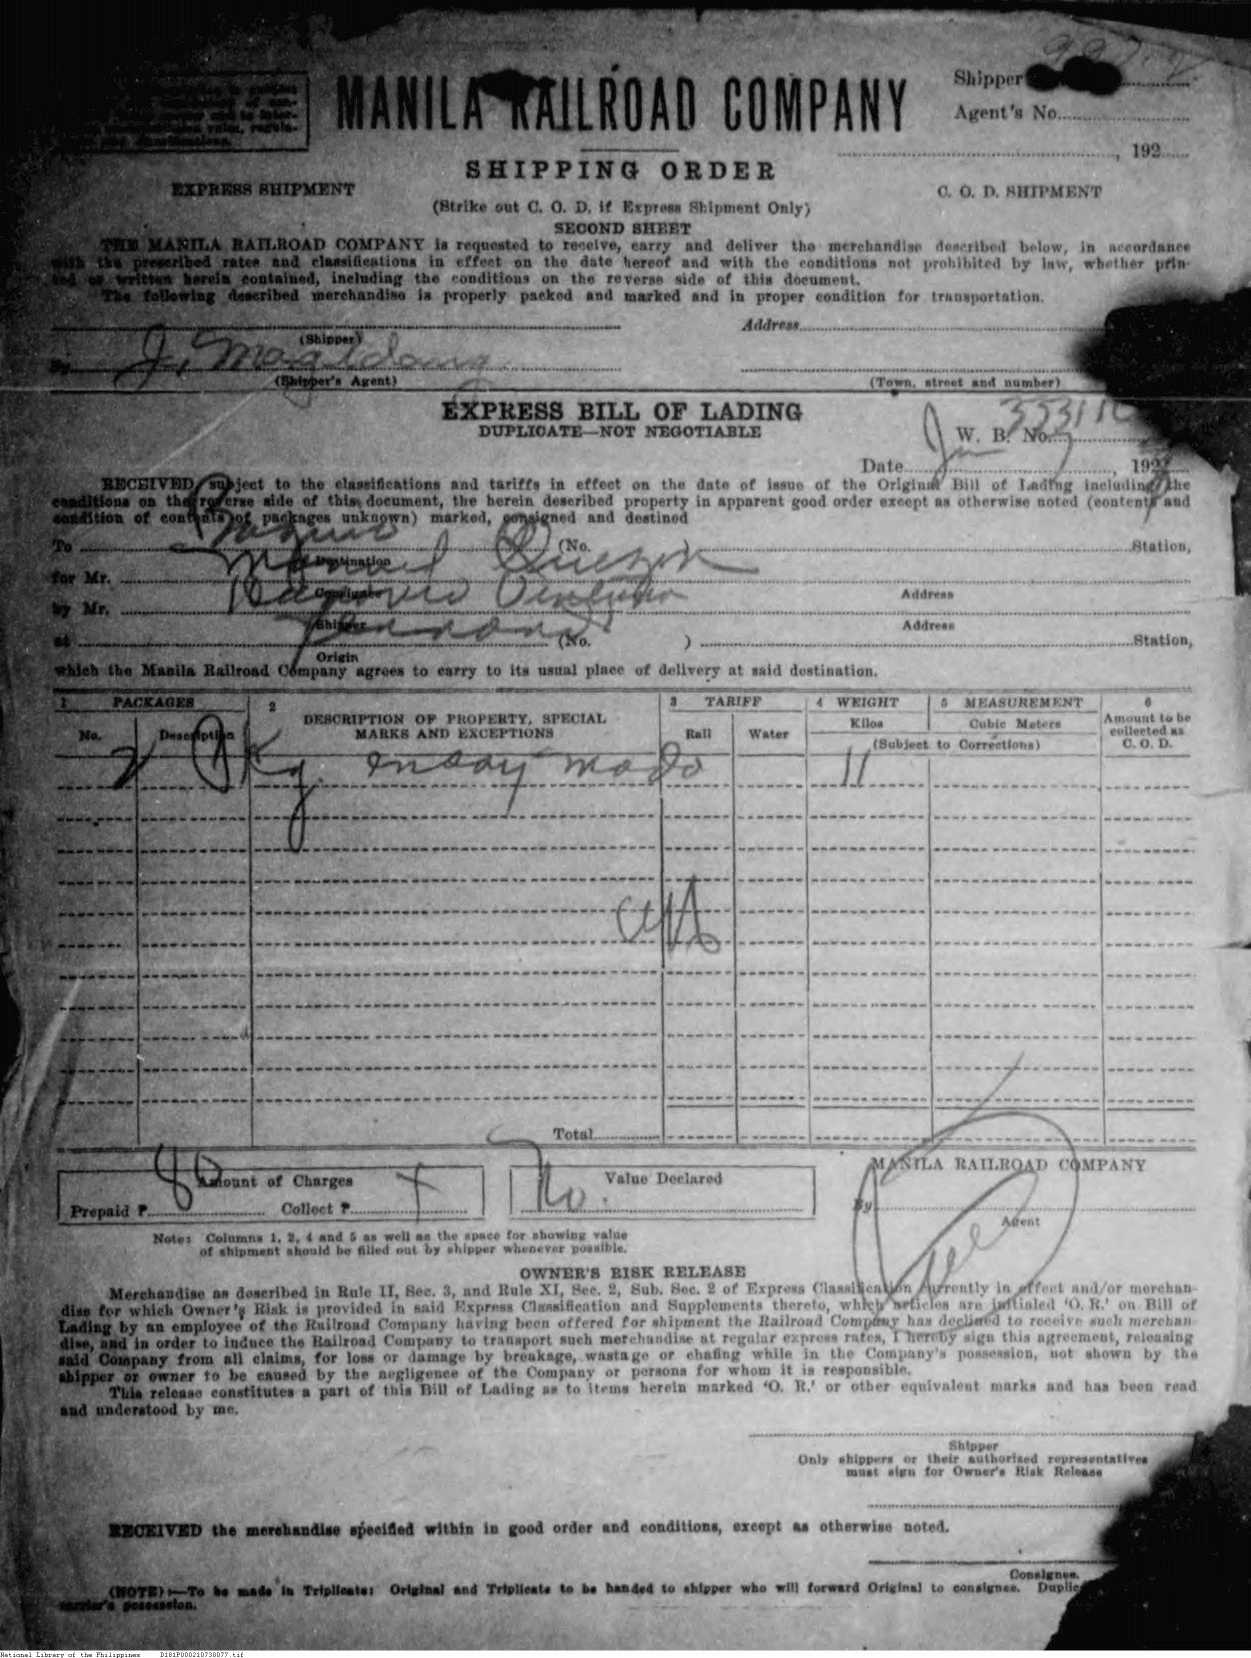 MANILA RAILROAD COMPANY
Shipper
Agent's No.
, 192
SHIPPING ORDER
EXPRESS SHIPMENT
C. O. D. SHIPMENT
(Strike out C. O. D. if Express Shipment Only)
SECOND SHEET
THE MANILA RAILROAD COMPANY is requested to receive, carry and deliver the merchandise described below, in accordance
with the prescribed rates and classifications in effect on the date hereof and with the conditions not prohibited by law, whether prin-
ted or written herein contained, including the conditions on the reverse side of this document.
The following described merchandise is properly packed and marked and in proper condition for transportation.
Address
(Shipper)
By J.
(Shipper's Agent)
(Town, street and number)
EXPRESS BILL OF LADING
DUPLICATE—NOT NEGOTIABLE
W. B. No.
Date , 192
RECEIVED, subject to the classifications and tariffs in effect on the date of issue of the Original Bill of Lading including the
conditions on the reverse side of this document, the herein described property in apparent good order except as otherwise noted (contents and
condition of contents of packages unknown) marked, consigned and destined
To (No. ) Station,
Destination
for Mr. Manuel Quezon
Consignee Address
by Mr. Ventura
Shipper Address
at (No. ) Station,
Origin
which the Manila Railroad Company agrees to carry to its usual place of delivery at said destination.
1 PACKAGES 2 3 TARIFF 4 WEIGHT 5 MEASUREMENT 6
No. Description DESCRIPTION OF PROPERTY, SPECIAL MARKS AND EXCEPTIONS Rail Water Kilos Cubic Meters Amount to be collected as C. O. D.
(Subject to Corrections)
2 11
Total
MANILA RAILROAD COMPANY
Amount of Charges
Value Declared
Prepaid ₱ Collect ₱
No.
By
Agent
Note: Columns 1, 2, 4 and 5 as well as the space for showing value
of shipment should be filled out by shipper whenever possible.
OWNER'S RISK RELEASE
Merchandise as described in Rule II, Sec. 3, and Rule XI, Sec. 2, Sub. Sec. 2 of Express Classification currently in effect and/or merchan-
dise for which Owner's Risk is provided in said Express Classification and Supplements thereto, which articles are initialed 'O. R.' on Bill of
Lading by an employee of the Railroad Company having been offered for shipment the Railroad Company has declined to receive such merchan
dise, and in order to induce the Railroad Company to transport such merchandise at regular express rates, I hereby sign this agreement, releasing
said Company from all claims, for loss or damage by breakage, wastage or chafing while in the Company's possession, not shown by the
shipper or owner to be caused by the negligence of the Company or persons for whom it is responsible.
This release constitutes a part of this Bill of Lading as to items herein marked 'O. R.' or other equivalent marks and has been read
and understood by me.
Shipper
Only shippers or their authorized representatives
must sign for Owner's Risk Release
RECEIVED the merchandise specified within in good order and conditions, except as otherwise noted.
Consignee.
(NOTE):—To be made in Triplicate: Original and Triplicate to be handed to shipper who will forward Original to consignee. Duplic
carrier's possession.
National Library of the Philippines D181P000210738077.tif